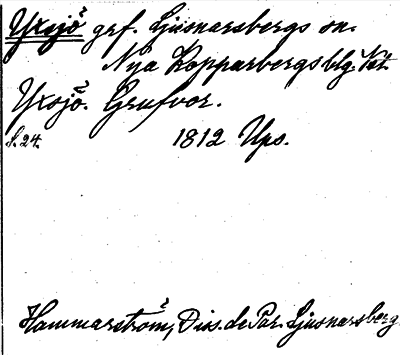 Yxsjö grf. Ljusnarsbergs sn.
Nya Kopparbergs blg. Väst.
Yxsjö. Grufvor.
S. 24. 1812 Ups.
Hammarström, Diss. de Par. Ljusnarsberg